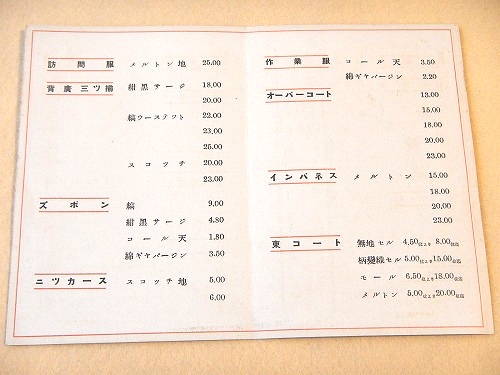 訪問服 メルトン地 25.00
背廣三ツ揃 紺黒サージ 18.00
20.00
縞ウーステツト 22.00
23.00
25.00
スコツチ 20.00
23.00
ズボン 縞 9.00
紺黒サージ 4.80
コール天 1.80
綿ギヤバージン 3.50
ニツカース スコツチ地 5.00
6.00
作業服 コール天 3.50
綿ギヤバージン 2.20
オーバーコート 13.00
15.00
18.00
20.00
23.00
インバネス メルトン 15.00
18.00
20.00
23.00
東コート 無地セル 4.50位より 8.00位迄
柄變織セル 5.00位より 15.00位迄
モール 6.50位より 18.00位迄
メルトン 5.00位より 20.00位迄